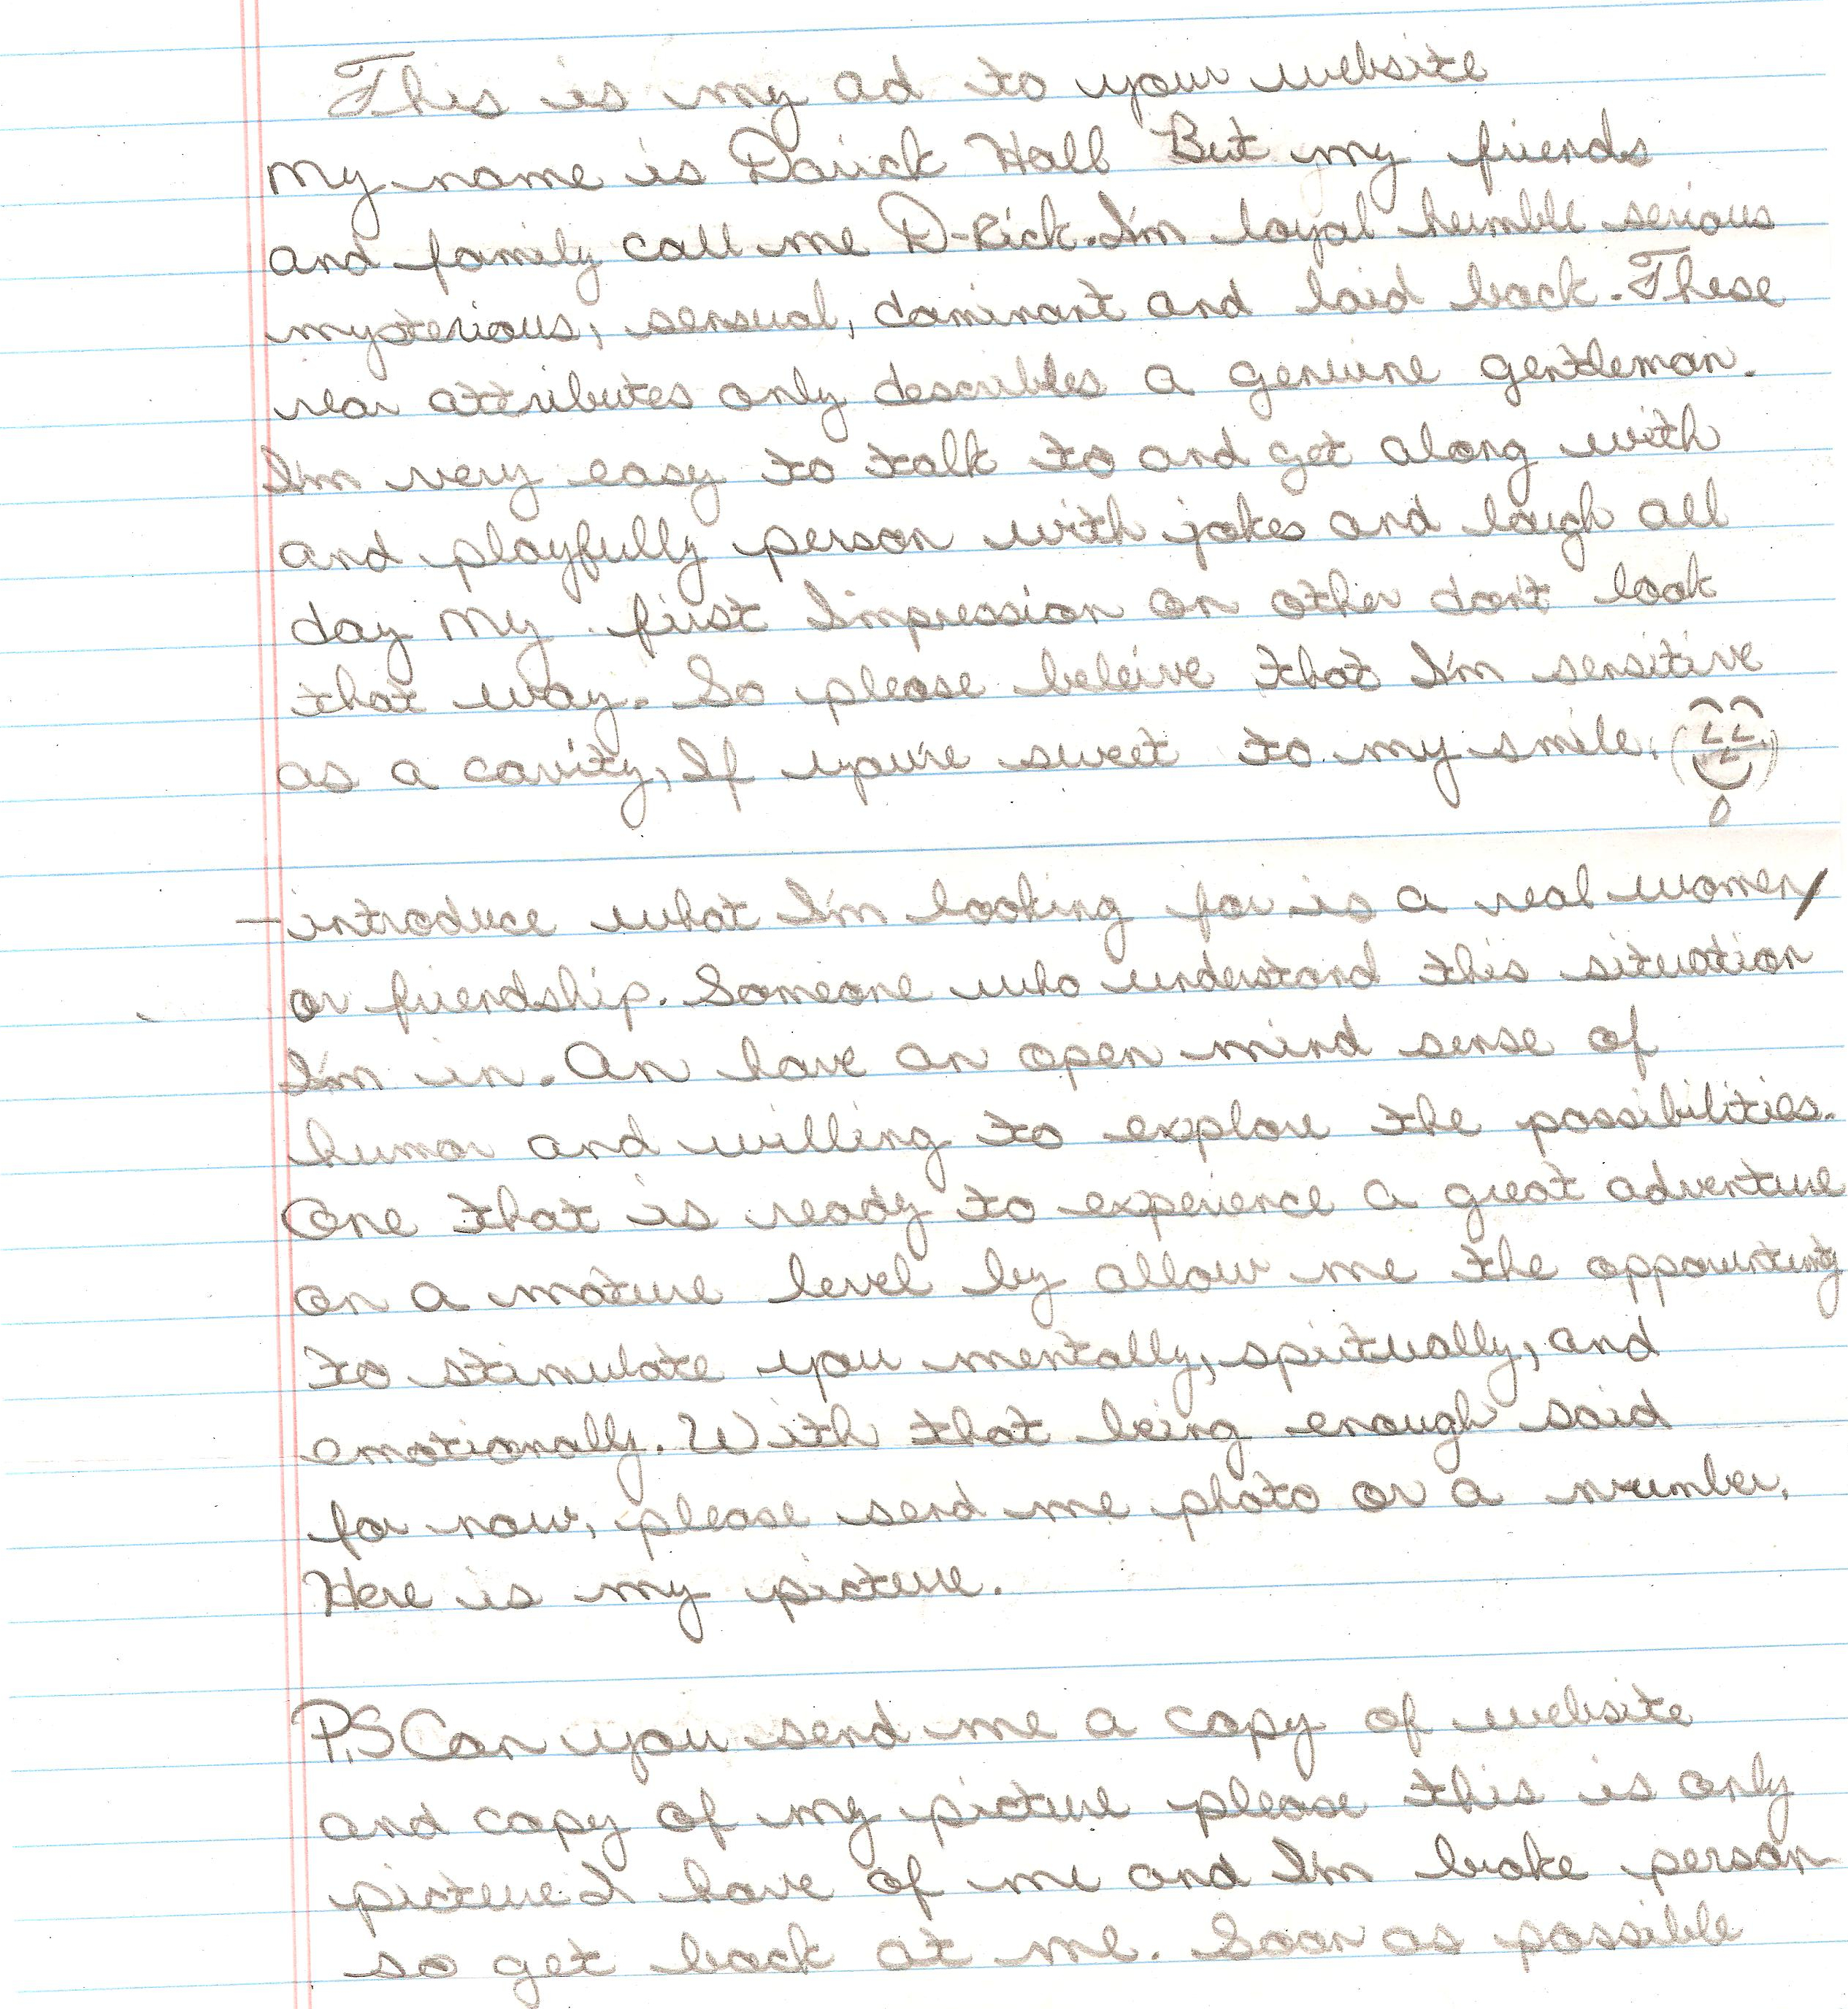 This is my ad to your website
My name is Darick Hall But my friends
and family call me D-Rick. I'm loyal humble serious
mysterious, sensual, dominant and laid back. These
rear attributes only describles a genuine gentleman.
I'm very easy to talk to and get along with
and playfully person with jokes and laugh all
day My first Impression on other don't look
that way. So please beleive that I'm sensitive
as a cavity, If you're sweet to my smile.
-introduce what I'm looking for is a real women/
or friendship. Someone who understand this situation
I'm in. An have an open mind sense of
humor and willing to explore the possibilities.
One that is ready to experience a great adventure
on a mature level by allow me the
to stimulate you mentally, spiritually, and
emotionally. With that being enough said
for now, please send me photo or a number.
Here is my picture.
P.S Can you send me a copy of website
and copy of my picture please this is only
picture I have of me and I'm broke person
so get back at me. Soon as possible